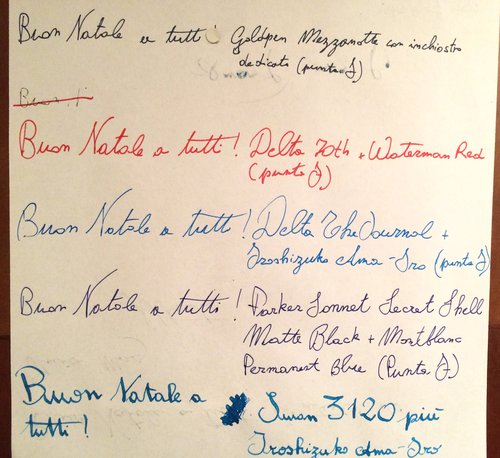 Buon Natale a tutti! Goldpen Mezzanotte con inchiostro
dedicato (punta F)
Buon ti
Buon Natale a tutti! Delta 70th + Waterman Red
(punta F)
Buon Natale a tutti! Delta The Journal +
Iroshizuko Ama-Iro (punta F)
Buon Natale a tutti! Parker Sonnet Secret Shell
Matte Black + Montblanc
Permanent Blue (Punta F)
Buon Natale a
tutti!
3120 più
Iroshizuko Ama-Iro